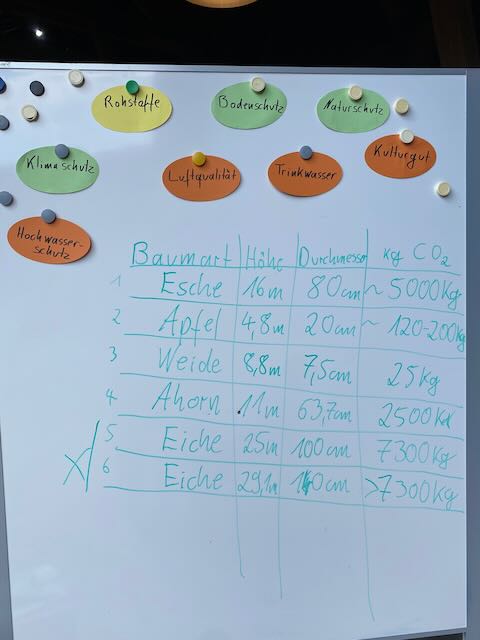 Rohstoffe
Bodenschutz
Naturschutz
Klimaschutz
Luftqualität
Trinkwasser
Kulturgut
Hochwasser-
schutz
Baumart Höhe Durchmesser kg CO₂
1 Esche 16m 80cm ~ 5000kg
2 Apfel 4,8m 20cm ~ 120-200kg
3 Weide 8,8m 7,5cm 25kg
4 Ahorn 11m 63,7cm 2500kg
5 Eiche 25m 100cm 7300kg
6 Eiche 29,1m 140cm >7300kg